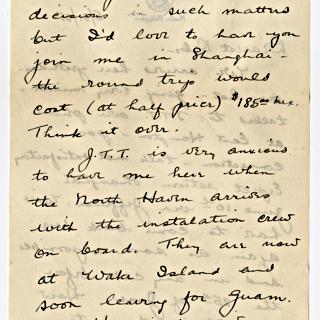 decisions in such matters
but I'd love to have you
join me in Shanghai -
the round trip would
cost (at half price) $186.00 hex.
Think it over.
J.T.T. is very anxious
to have me here when
the North Haven arrives
with the instalation crew
on board. They are now
at Wake Island and
soon leaving for Guam.